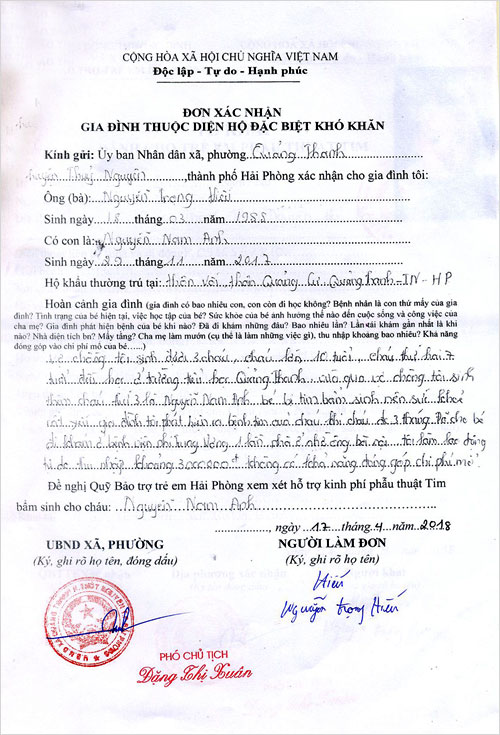 CỘNG HÒA XÃ HỘI CHỦ NGHĨA VIỆT NAM
Độc lập - Tự do - Hạnh phúc
ĐƠN XÁC NHẬN
GIA ĐÌNH THUỘC DIỆN HỘ ĐẶC BIỆT KHÓ KHĂN
Kính gửi: Ủy ban Nhân dân xã, phường Quảng Thanh
huyện Thuỷ Nguyên ,thành phố Hải Phòng xác nhận cho gia đình tôi:
Ông (bà): Nguyễn trọng Hiếu
Sinh ngày 18 tháng 03 năm 1988
Có con là: Nguyễn Nam Anh
Sinh ngày 29 tháng 11 năm 2017
Hộ khẩu thường trú tại: thôn Quảng Cư Quảng Thanh - TN - HP
Hoàn cảnh gia đình (gia đình có bao nhiêu con, con còn đi học không? Bệnh nhân là con thứ mấy của gia
đình? Tình trạng của bé hiện tại, việc học tập của bé? Sức khỏe của bé ảnh hưởng thế nào đến cuộc sống và công việc của
cha mẹ? Gia đình phát hiện bệnh của bé khi nào? Đã đi khám những đâu? Bao nhiêu lần? Lần tái khám gần nhất là khi
nào? Nhà diện tích bn? Mấy tầng? Cha mẹ làm mướn (cụ thể là làm những việc gì), thu nhập khoảng bao nhiêu? Khả năng
đóng góp vào chi phí mổ của bé......)
vợ chồng tôi sinh được 3 cháu, cháu lớn 10 tuổi, cháu thứ hai 7
tuổi đang học ở trường tiểu học Quảng Thanh vừa qua vợ chồng tôi sinh
thêm cháu thứ 3 là Nguyễn Nam Anh bé bị tim bẩm sinh nên sức khoẻ
rất yếu gia đình tôi phát hiện ra bệnh tim của cháu khi cháu được 3 tháng Đã cho bé
đi khám ở bệnh viện nhi Trung Ương 1 lần nhà ở nhờ ông bà nội tôi làm lao động
tự do thu nhập khoảng 3.000.000đ không có khả năng đóng góp chi phí mổ
Đề nghị Quỹ Bảo trợ trẻ em Hải Phòng xem xét hỗ trợ kinh phí phẫu thuật Tim
bẩm sinh cho cháu: Nguyễn Nam Anh
, ngày 17 tháng 4 năm 2018
UBND XÃ, PHƯỜNG
(Ký, ghi rõ họ tên, đóng dấu)
NGƯỜI LÀM ĐƠN
(Ký, ghi rõ họ tên)
Hiếu
Nguyễn trọng Hiếu
PHÓ CHỦ TỊCH
Đặng Thị Xuân